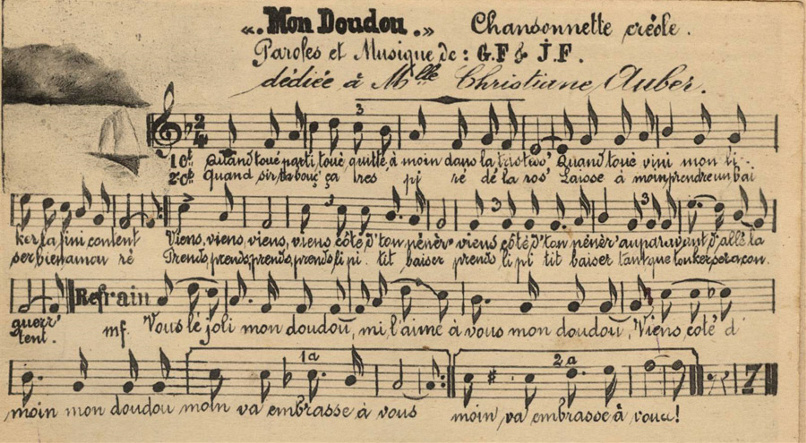 «. Mon Doudou. » Chansonnette créole.
Paroles et Musique de : G.F & J.F.
dédiée à Mlle Christiane Auber.
3
2/4
1o Quand toué parti, toué quitte, à moin dans la tristess' Quand toué vini mon li-
2o Quand sir ta bouç' ça res pi ré dé la ros' Laisse à moin prendre un bai
3 3 3
ker la fini content Viens, viens, viens, viens côté d'ton pénèr' viens côté d'ton pénèr' auparavant d'allé la
ser bien amou ré Prends, prends, prends, prends li pi tit baiser prends li pi tit baiser tant que ton ker sera con
Refrain
guerr' mf. Vous lé joli mon doudou, mi l'aime à vous mon doudou, Viens coté d'
tent.
1a 2a
moin mon doudou moin va embrasse à vous moin va embrasse à vous!